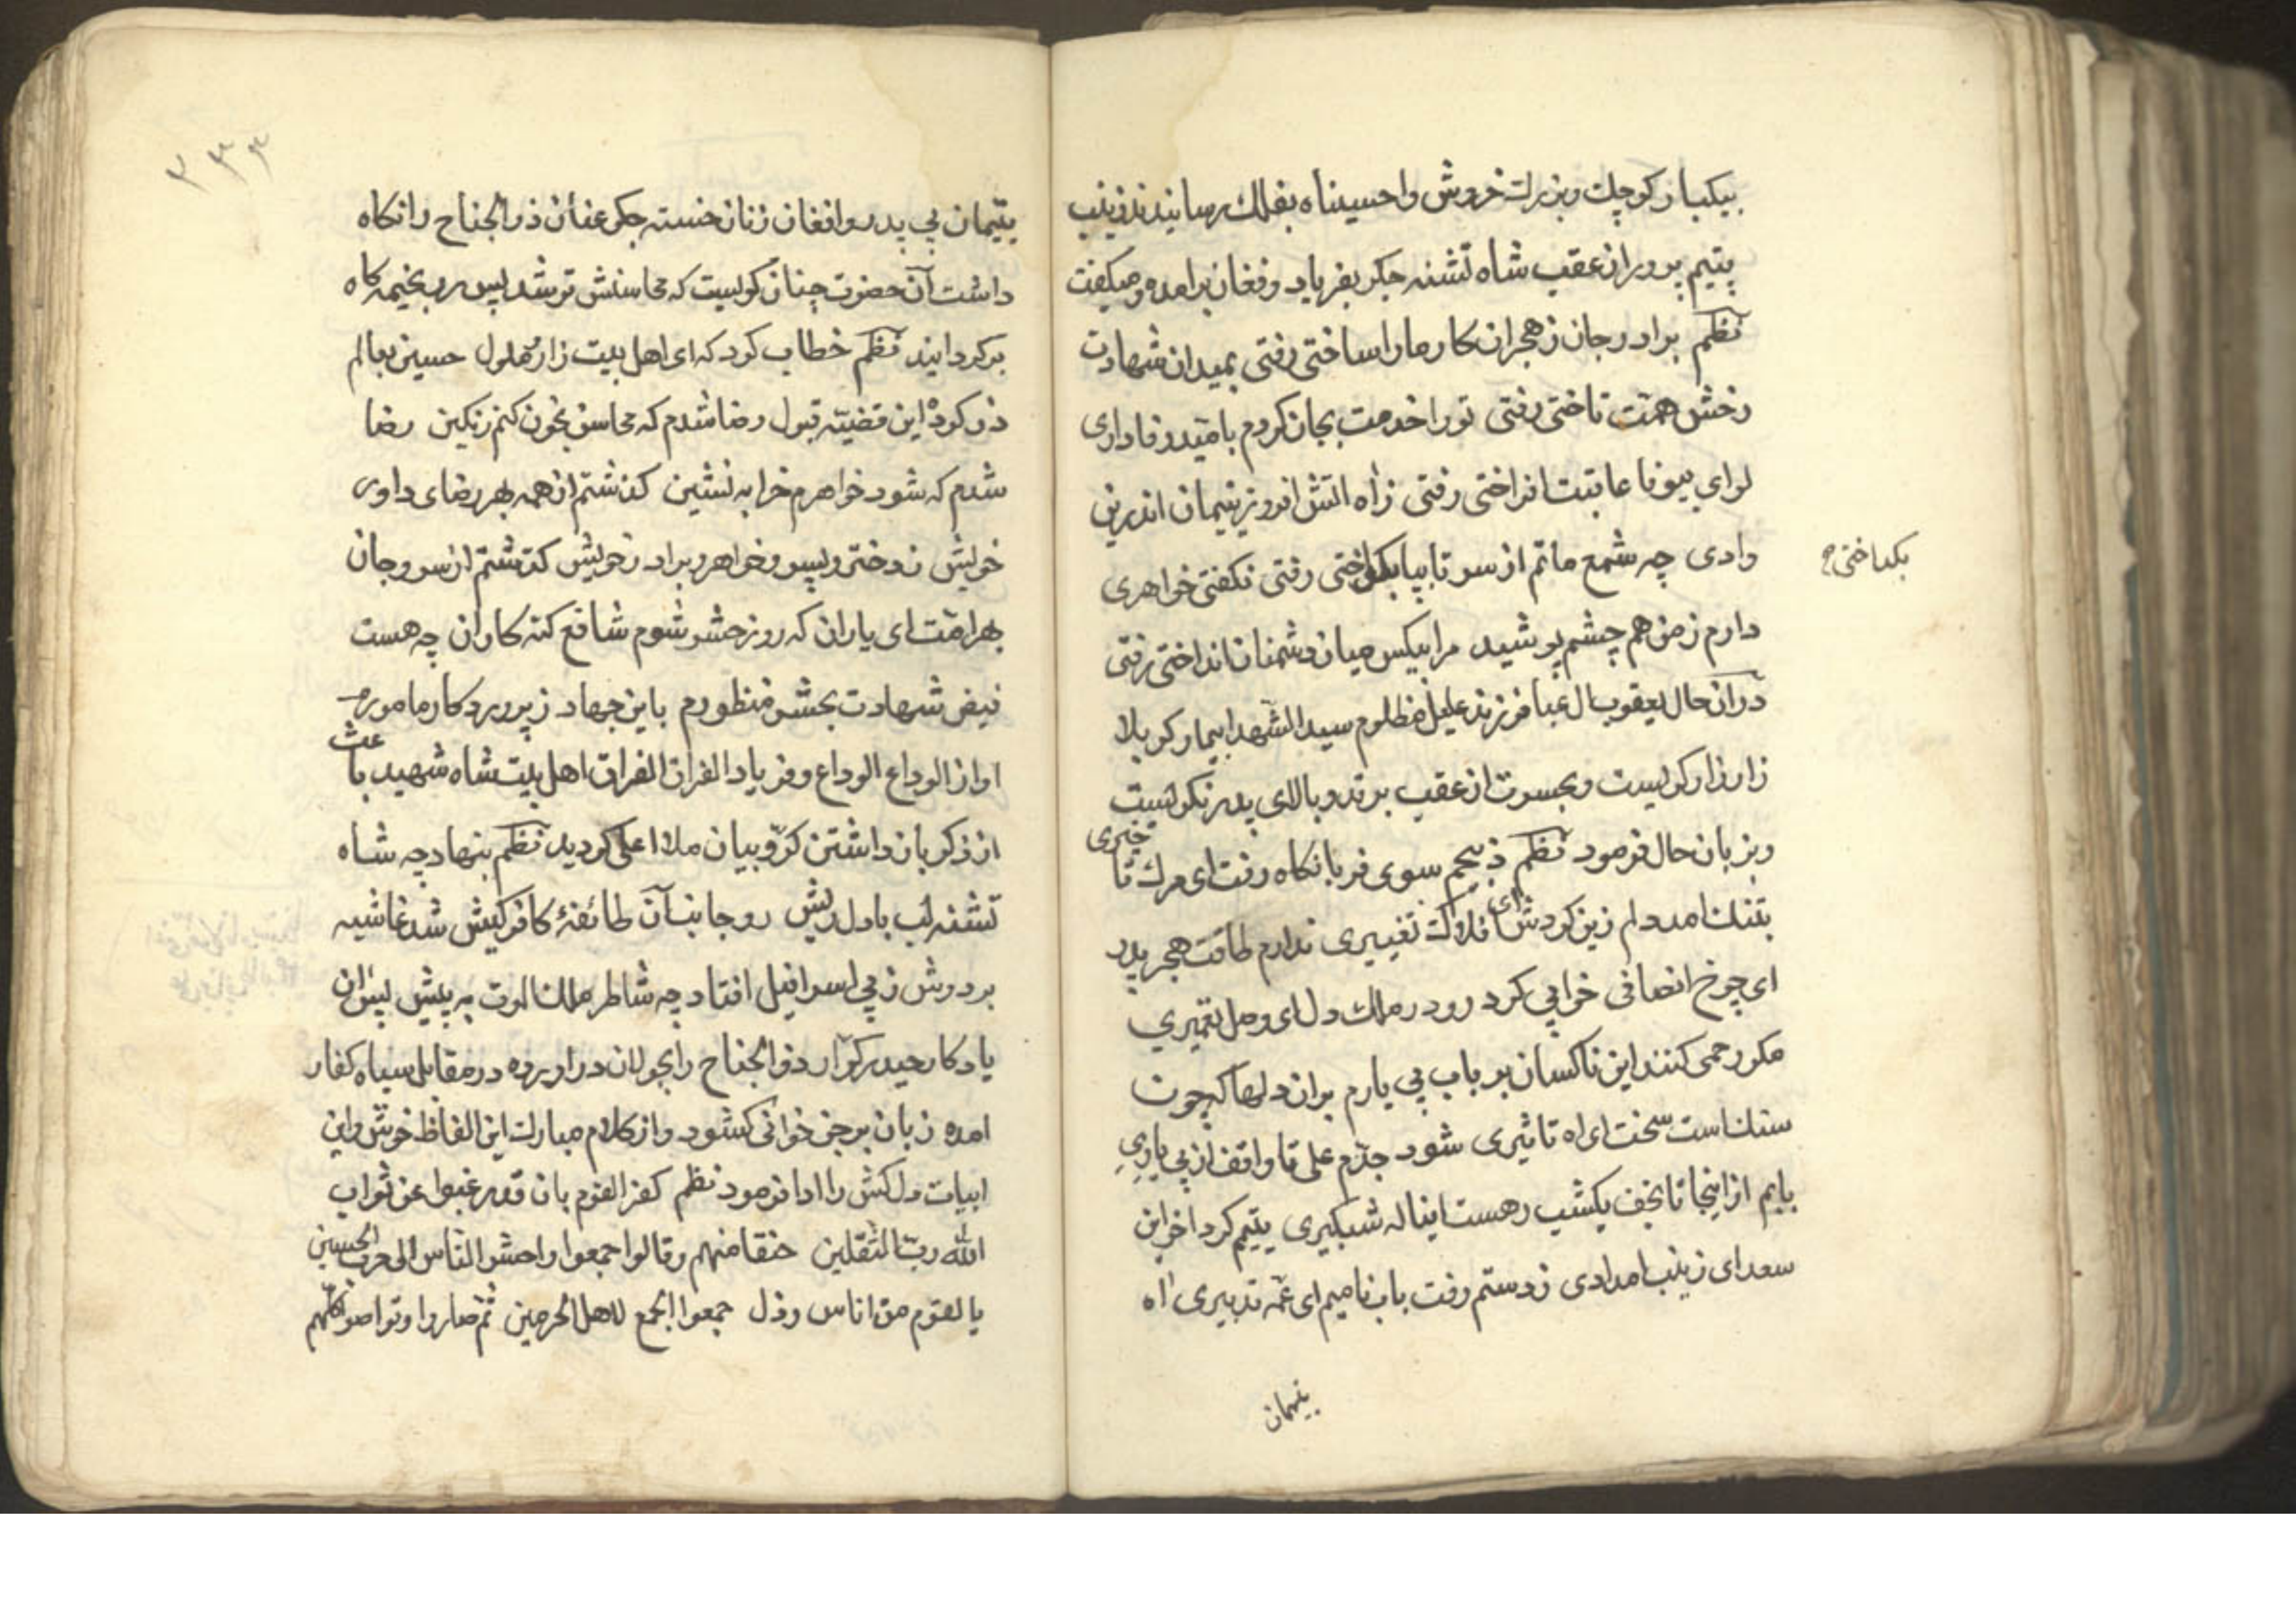 بیکبار کوچك وبزرك خروش واحسیناه بفلك رسانیدند زینب
یتیم پرور از عقب شاه تشنه جکر بفریاد وفغان برامده ومیکفت
نظم برادر جان ز هجران کار ما را ساختی رفتی بمیدان شهادت
رخش همت تاختی رفتی تو را خدمت بجان کردم بامید وفاداری
لوای بیوفا عاقبت افراختی رفتی ز آه اتش افروز یتیمان اندرین
وادی چه شمع ماتم از سر تا بپا بکداختی رفتی نکفتی خواهری
بکداختی
دارم ز من هم چشم پوشیدی مرا بیکس میان دشمنان انداختی رفتی
در آن حال یعقوب ال عبا فرزند علیل مظلوم سید الشهدا بیمار کربلا
زار زار کریست وبحسرت از عقب بر قد وبالای پدر نکریست
وبزبان حال فرمود نظم ذبیحم سوی قربانکاه رفت ای مرك تا خیری
بتنك امد دلم زین کردش ای افلاك تغییری ندارم طاقت هجر پدر
ای چرخ انصافی خرابی کرد رو در ملك دل ای وصل تعمیری
مکر رحمی کنند این ناکسان بر باب بی یارم بران دلها که چون
سنك است سخت ای اه تاثیری شود جدم علی تا واقف از بی یاری
بابم از اینجا تا نجف یکشب رهست ایناله شبکیری یتیم کرد اخر ابن
سعد ای زینب امدادی ز دستم رفت باب نامیم ای عمه تدبیری اه
یتیمان
یتیمان بی پدر وافغان زنان خسته جکر عنان ذوالجناح را نکاه
داشت آن حضرت چنان کریست که محاسنش تر شد پس رو بخیمه کاه
برکردانید نظم خطاب کرد که ای اهل بیت زار ملول حسین بعالم
ذر کرد این قضیه قبول رضا شدم که محاسن بخون کنم رنکین رضا
شدم که شود خواهرم خرابه نشین کذشتم از همه بهر رضای داور
خویش ز دختر وپسر وخواهر وبرادر خویش کذشتم از سر وجان
بهر امت ای یاران که روز حشر شوم شافع کنه کاران چه هست
فیض شهادت بحشر منظورم باین جهاد ز پروردکار مامورم
اواز الوداع الوداع وفریاد الفراق الفراق اهل بیت شاه شهید باعث
از ذکر بازداشتن کروبیان ملاء اعلی کردید نظم بنهاد چه شاه
تشنه لب با دل ریش رو جانب آن طائفهٔ کافرکیش شد غاشیه
بر دوش ز پی اسرافیل افتاد چه شاطر ملك الموت به پیش پس ان
یادکار حیدر کرار ذوالجناح را بجولان در اورده در مقابل سپاه کفار
امده زبان برجز خوانی کشود واز کلام مبارك این الفاظ خوش واین
ابیات دلکش را ادا فرمود نظم کفر القوم بان قدر غبوا عن ثواب
الله رب الثقلین حنقا منهم وقالوا جمعوا واحشر الناس الی حرب الحسین
یا لقوم من اناس رذل جمعوا الجمع لاهل الحرمین ثم صاروا وتواصوا کلهم